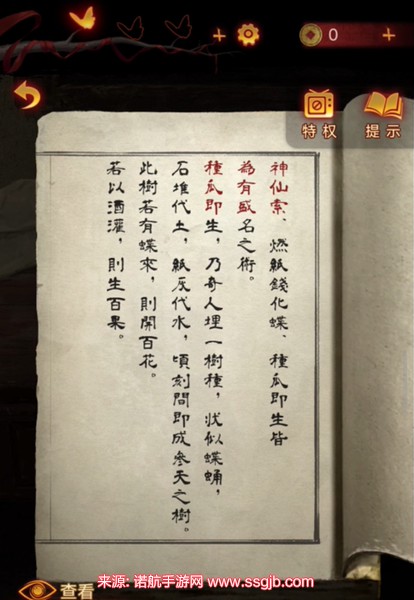 0
特权
提示
神仙索、燃紙錢化蝶、種瓜即生皆
為有盛名之術。
種瓜即生，乃奇人埋一樹種，狀似蝶蛹，
石堆代土，紙灰代水，頃刻間即成參天之樹。
此樹若有蝶來，則開百花。
若以酒灌，則生百果。
查看
来源: 诺航手游网 www.ssgjb.com